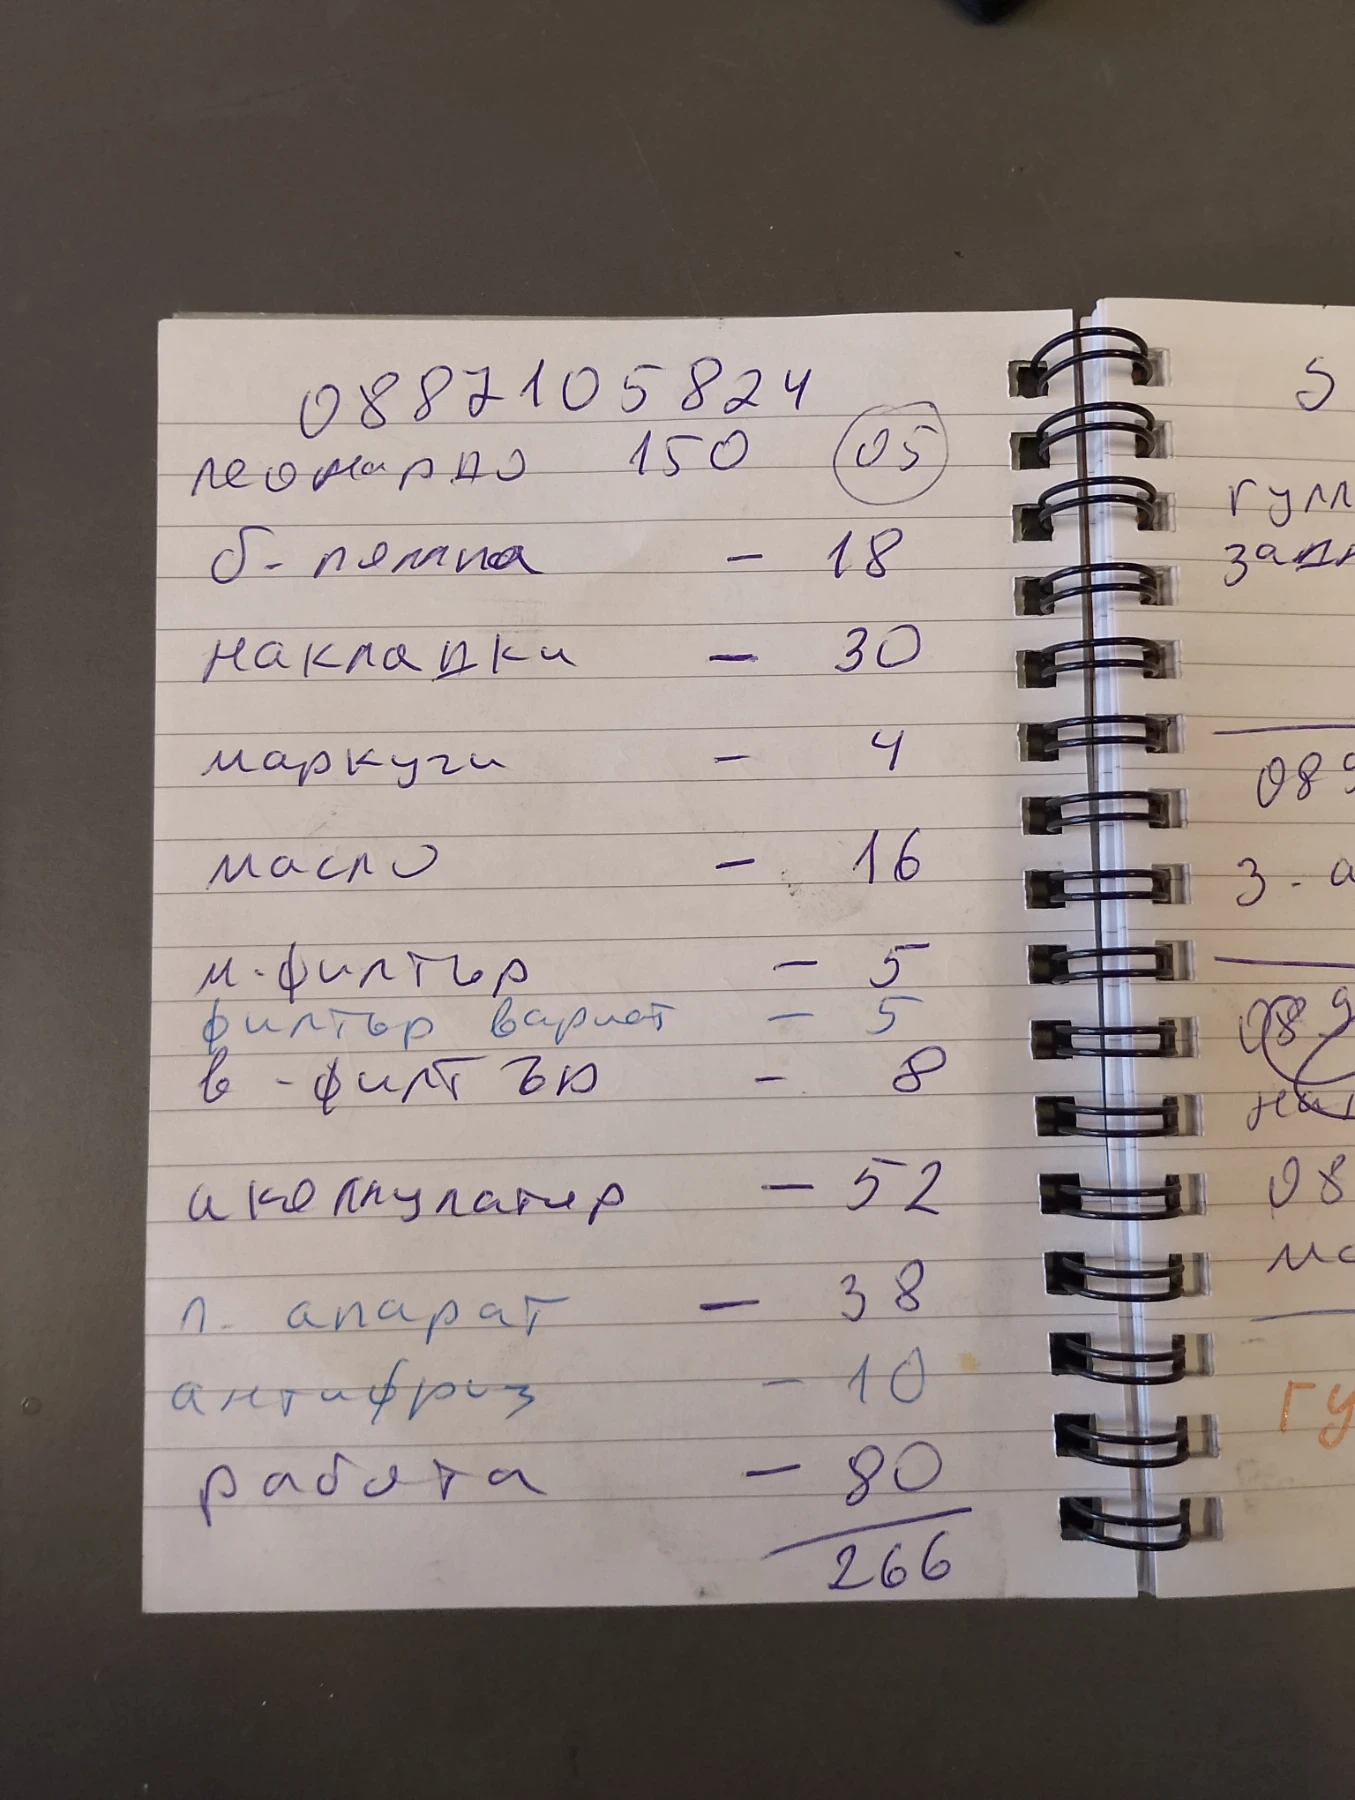 0887105824
леонардо 150 05
б-помпа - 18
накладки - 30
маркучи - 4
масло - 16
м.филтър - 5
филтър вариат - 5
в-филтър - 8
акомулатир - 52
п. апарат - 38
антифриз - 10
работа - 80
266
5
089
3.
089
08